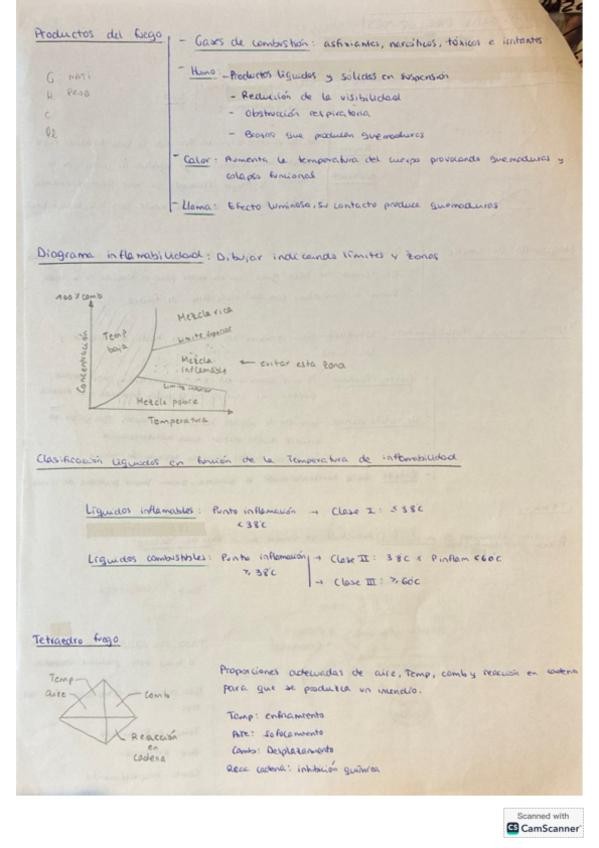 Productos del fuego
- Gases de combustión: asfixiantes, narcóticos, tóxicos e irritantes
- Humo: - Productos líquidos y sólidos en suspensión
- Reducción de la visibilidad
- Obstrucción respiratoria
- Brasas que producen quemaduras
- Calor: Aumenta la temperatura del cuerpo provocando quemaduras y
colapso funcional
- Llama: Efecto luminoso, su contacto produce quemaduras
G NATI
H
C
Diagrama inflamabilidad: Dibujar indicando límites y zonas
100% comb
Concentración
Temp
baja
Mezcla rica
Limite superior
Mezcla
inflamable
← evitar esta zona
Limite inferior
Mezcla pobre
Temperatura
Clasificación líquidos en función de la Temperatura de inflamabilidad
Líquidos inflamables: Punto inflamación → Clase I: ≤ 38ºC
< 38ºC
Líquidos combustibles: Punto inflamación → Clase II: 38ºC < P inflam < 60ºC
≥ 38ºC
→ Clase III: ≥ 60ºC
Tetraedro fuego
Temp
aire
Comb
Reacción
en
cadena
Proporciones adecuadas de aire, Temp, comb y reacción en cadena
para que se produzca un incendio.
Temp: enfriamiento
Aire: Sofocamiento
Comb: Desplazamiento
Reac cadena: inhibición química
Scanned with
CS CamScanner